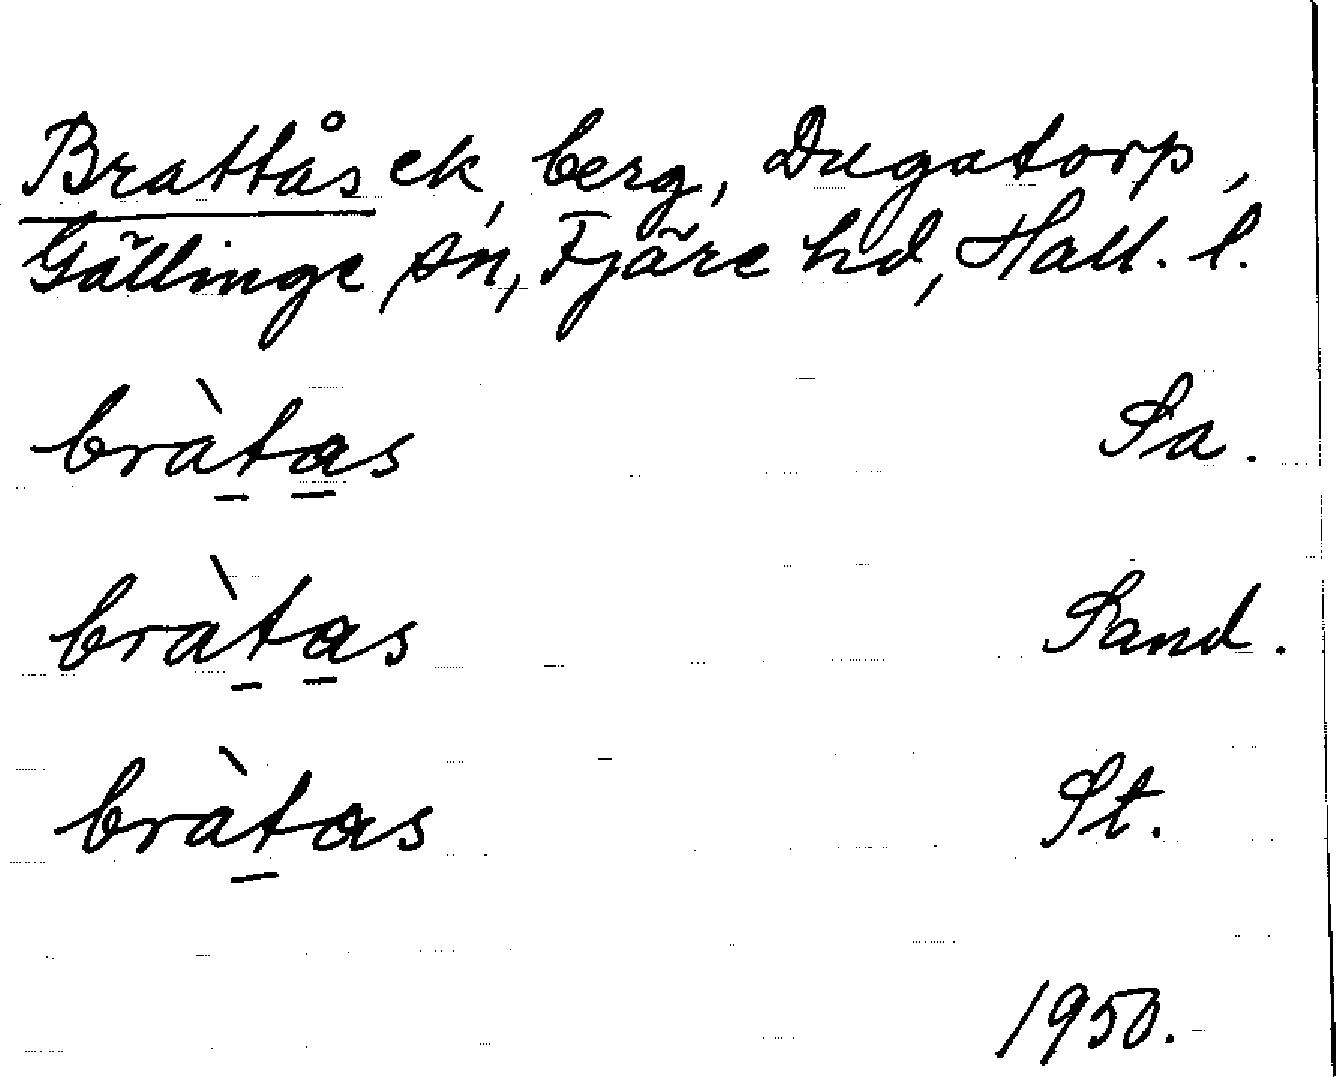 Brattås ek, berg, Dugatorp,
Gällinge sn, Fjäre hd, Hall. l.
bràtas Sa.
bràtas Sand.
bràtas St.
1950.